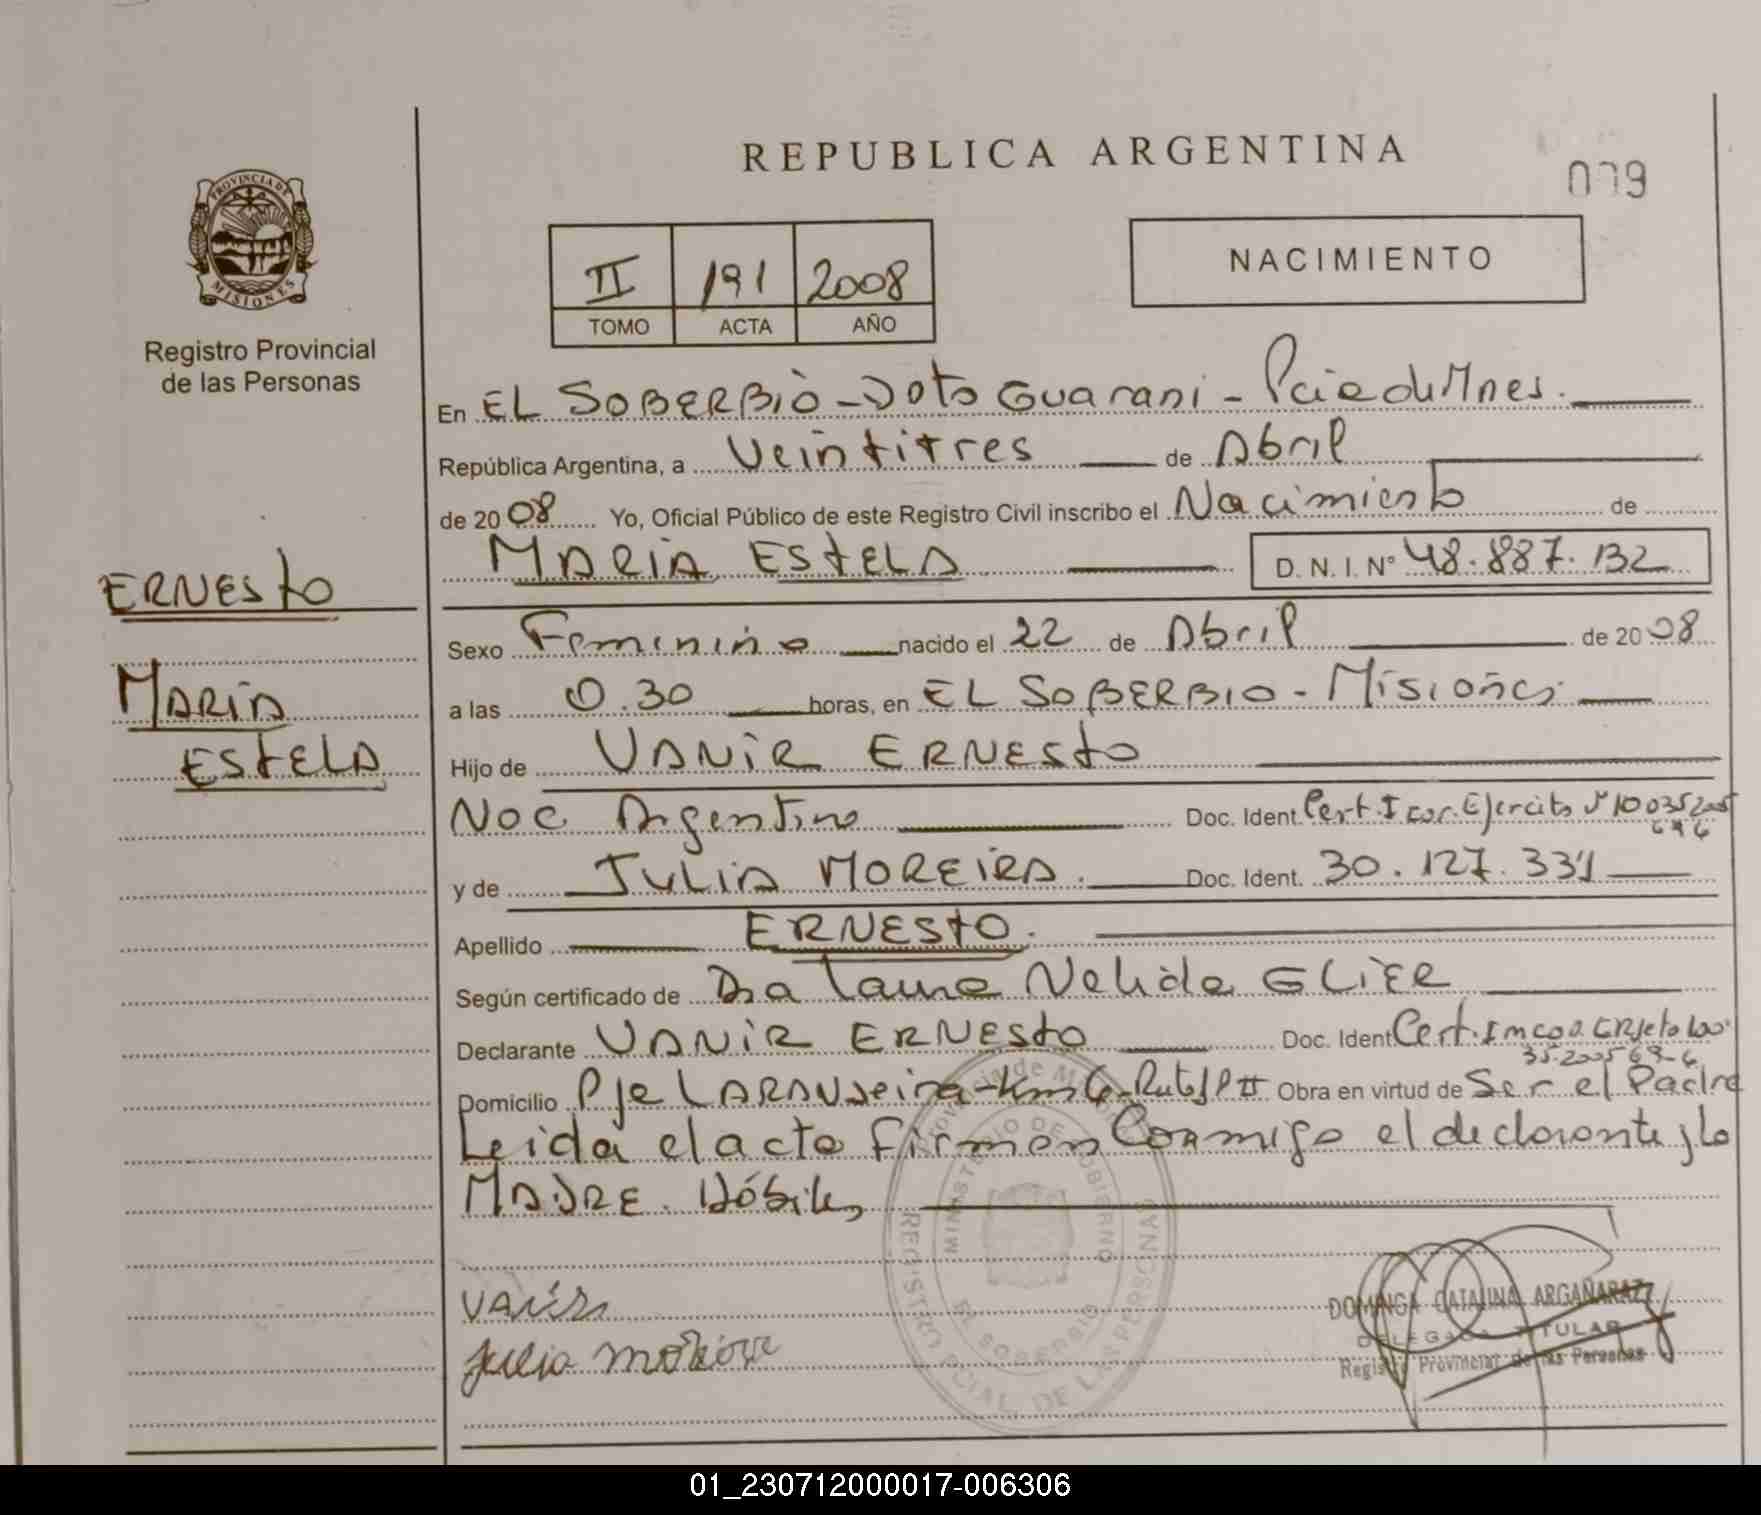 REPUBLICA ARGENTINA
079
PROVINCIA DE
MISIONES
Registro Provincial
de las Personas
II 191 2008
TOMO ACTA AÑO
NACIMIENTO
En EL SOBERBIO - Dpto Guarani - Pcia de Mnes.
República Argentina, a Veintitres de Abril
de 2008 Yo, Oficial Público de este Registro Civil inscribo el Nacimiento de
MARIA ESTELA D. N. I. N° 48.887.132
ERNESTO
MARIA
ESTELA
Sexo Feminino nacido el 22 de Abril de 2008
a las 0.30 horas, en EL SOBERBIO - Misiones
Hijo de VANIR ERNESTO
Nac Argentino Doc. Ident. Cert. I cor. Ejercito N° 100352005
y de JULIA MOREIRA. Doc. Ident. 30.127.331
Apellido ERNESTO.
Según certificado de Dra Laura Nelida GLIER
Declarante VANIR ERNESTO Doc. Ident Cert.
Domicilio Pje LARANJeira - Km 6 - Ruta P II Obra en virtud de Ser el Padre
Leida el acta firman Conmigo el declarante y la
MADRE. Hábiles
Provincia de Misiones
MINISTERIO DE GOBIERNO
REGISTRO PCIAL. DE LAS PERSONAS
EL SOBERBIO
VANIR
Julia moreira
DOMINGA CATALINA ARGAÑARAZ
DELEGADA TITULAR
Registro Provincial de las Personas
01_230712000017-006306